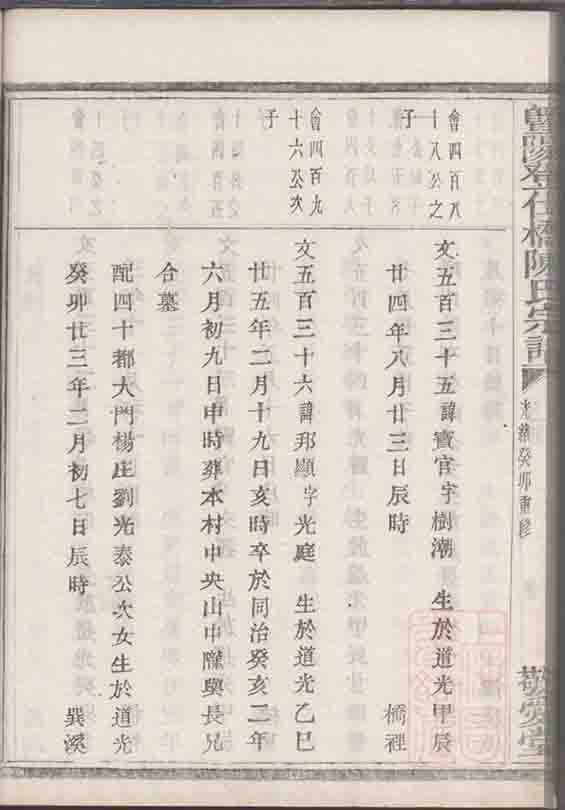 暨陽登仕橋陳氏宗譜
光緒癸卯重修
敬愛堂
會四百八
十八公之
子
文五百三十五諱寶官字樹潮 生於道光甲辰
廿四年八月廿三日辰時 橋裡
會四百九
十六公次
子
文五百三十六諱邦顯字光庭 生於道光乙巳
廿五年二月十九日亥時卒於同治癸亥二年
六月初九日申時葬本村中央山中隴與長兄
合墓
配四十都大門楊庄劉光泰公次女生於道光
癸卯廿三年二月初七日辰時 巽溪